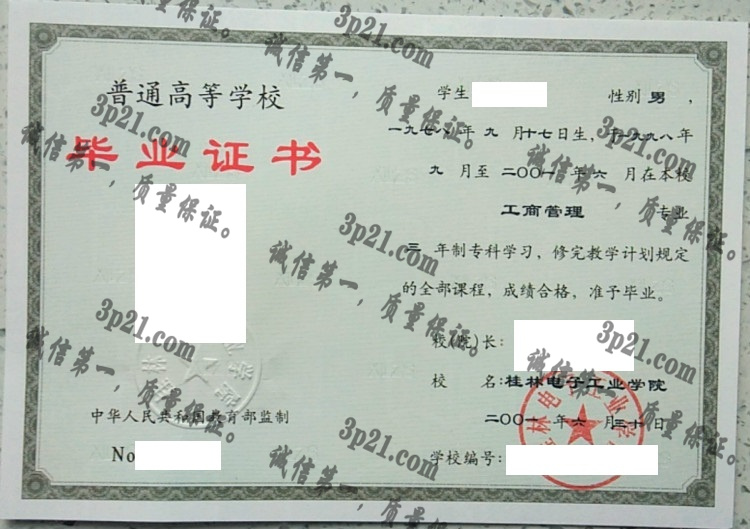 普通高等学校
毕业证书
中华人民共和国教育部监制
No
学生 性别 男 ，
一九七八年 九 月十七日生，于一九九八年
九 月至 二〇〇一 年 六 月在本校
工商管理 专业
三 年制专科学习，修完教学计划规定
的全部课程，成绩合格，准予毕业。
校(院)长：
校 名：桂林电子工业学院
二〇〇一 年 六 月三十日
学校编号：
3p21.com
诚信第一，质量保证。
3p21.com
诚信第一，质量保证。
3p21.com
诚信第一，质量保证。
3p21.com
诚信第一，质量保证。
3p21.com
诚信第一，质量保证。
3p21.com
诚信第一，质量保证。
3p21.com
诚信第一，质量保证。